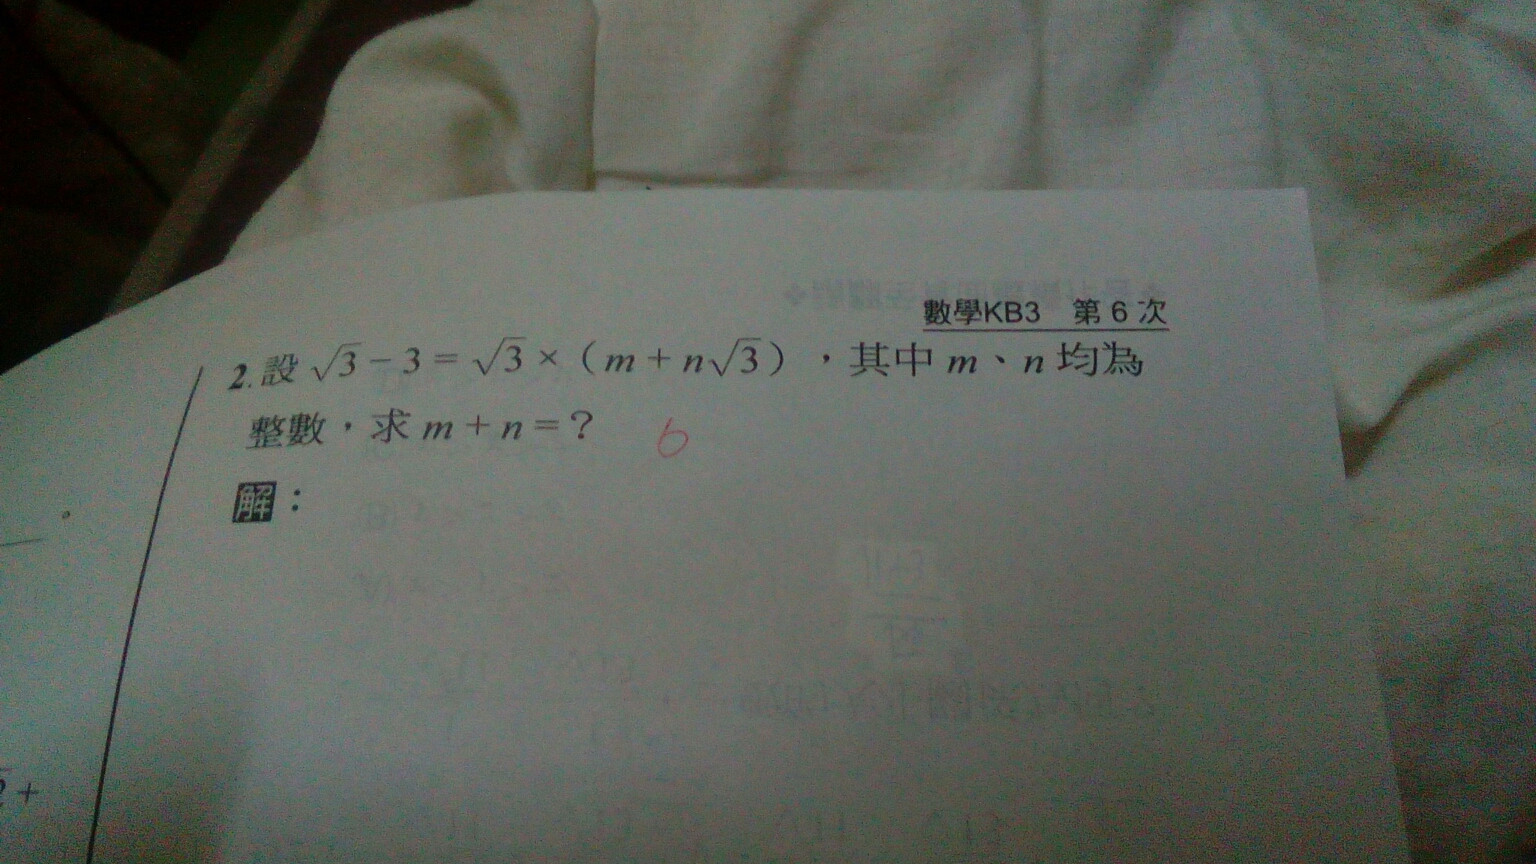 數學KB3 第 6 次
2. 設 √3 − 3 = √3 × ( m + n√3 ) ，其中 m、n 均為
整數，求 m + n = ? 6
解：